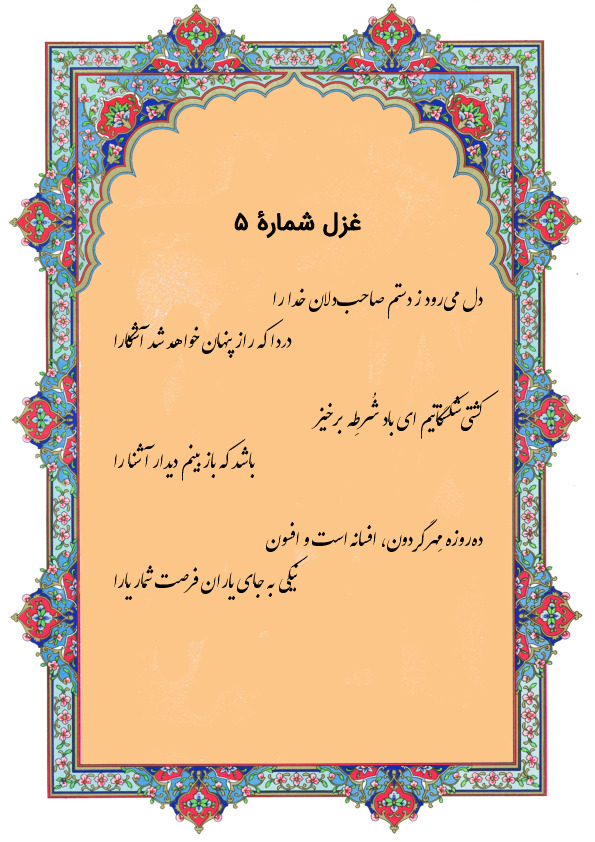 غزل شمارهٔ ۵
دل می‌رود ز دستم صاحب‌دلان خدا را
دردا که راز پنهان خواهد شد آشکارا
کشتی‌شکستگانیم ای باد شُرطِه برخیز
باشد که بازبینم دیدار آشنا را
ده‌روزه مِهر گردون، افسانه است و افسون
نیکی به جای یاران فرصت شمار یارا